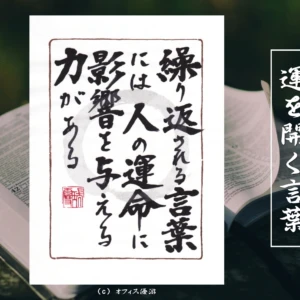 繰り返される言葉
には人の運命に
影響を与える
力がある
運を開く言葉
(c) オフィス優沼